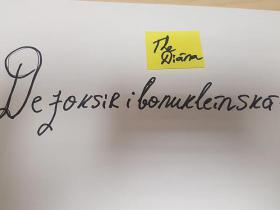 The
Diāna
Dezoksiribonukleīnskā